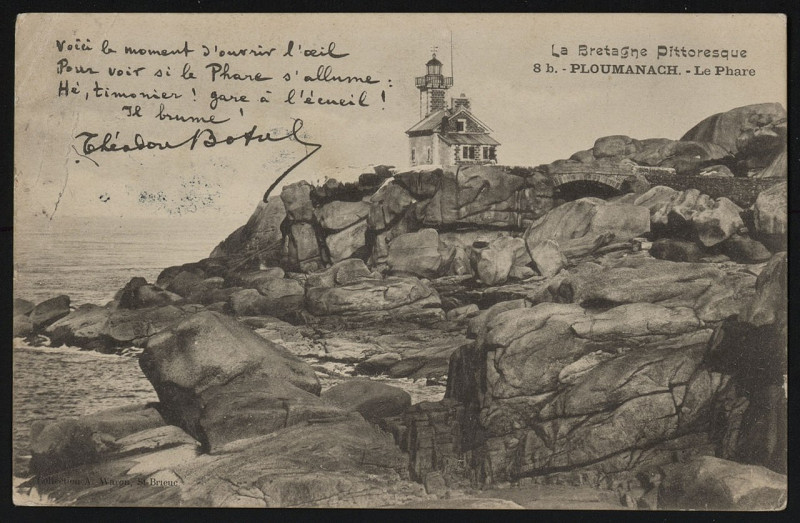 Voici le moment d'ouvrir l'œil
Pour voir si le Phare s'allume :
Hé, timonier ! gare à l'écueil !
Il brume !
Théodore Botrel
La Bretagne Pittoresque
8 b. - PLOUMANACH. - Le Phare
Collection A. Waron, St-Brieuc